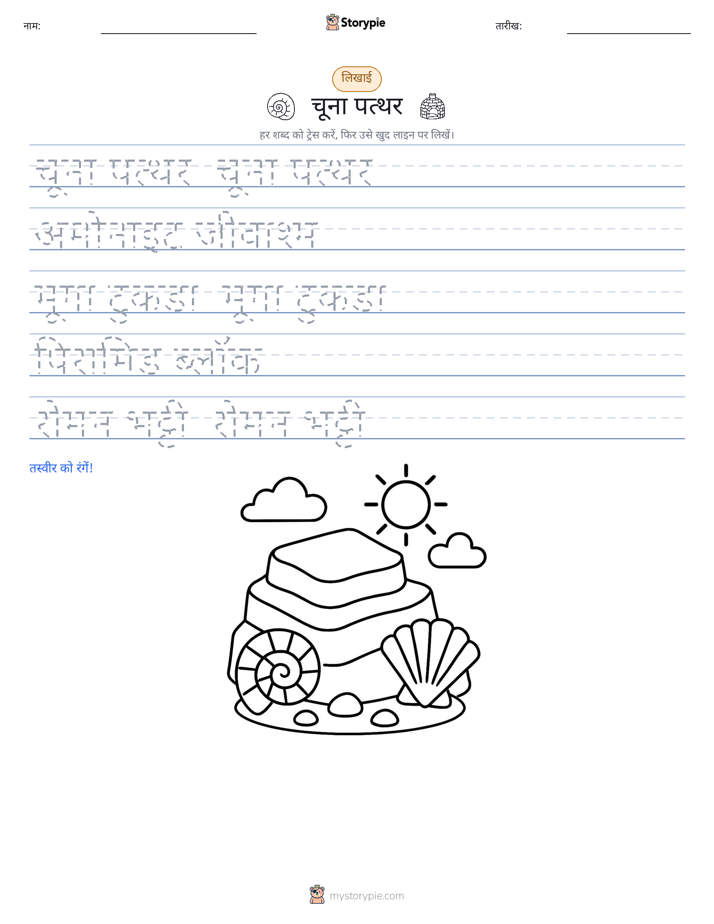 नाम:
Storypie
तारीख:
लिखाई
चूना पत्थर
हर शब्द को ट्रेस करें, फिर उसे खुद लाइन पर लिखें।
चूना पत्थर चूना पत्थर
अमोनाइट जीवाश्म
मूगा टुकडा मूगा टुकडा
पिरामिड ब्लॉक
रोमन भट्टी रोमन भट्टी
तस्वीर को रंगें!
mystorypie.com